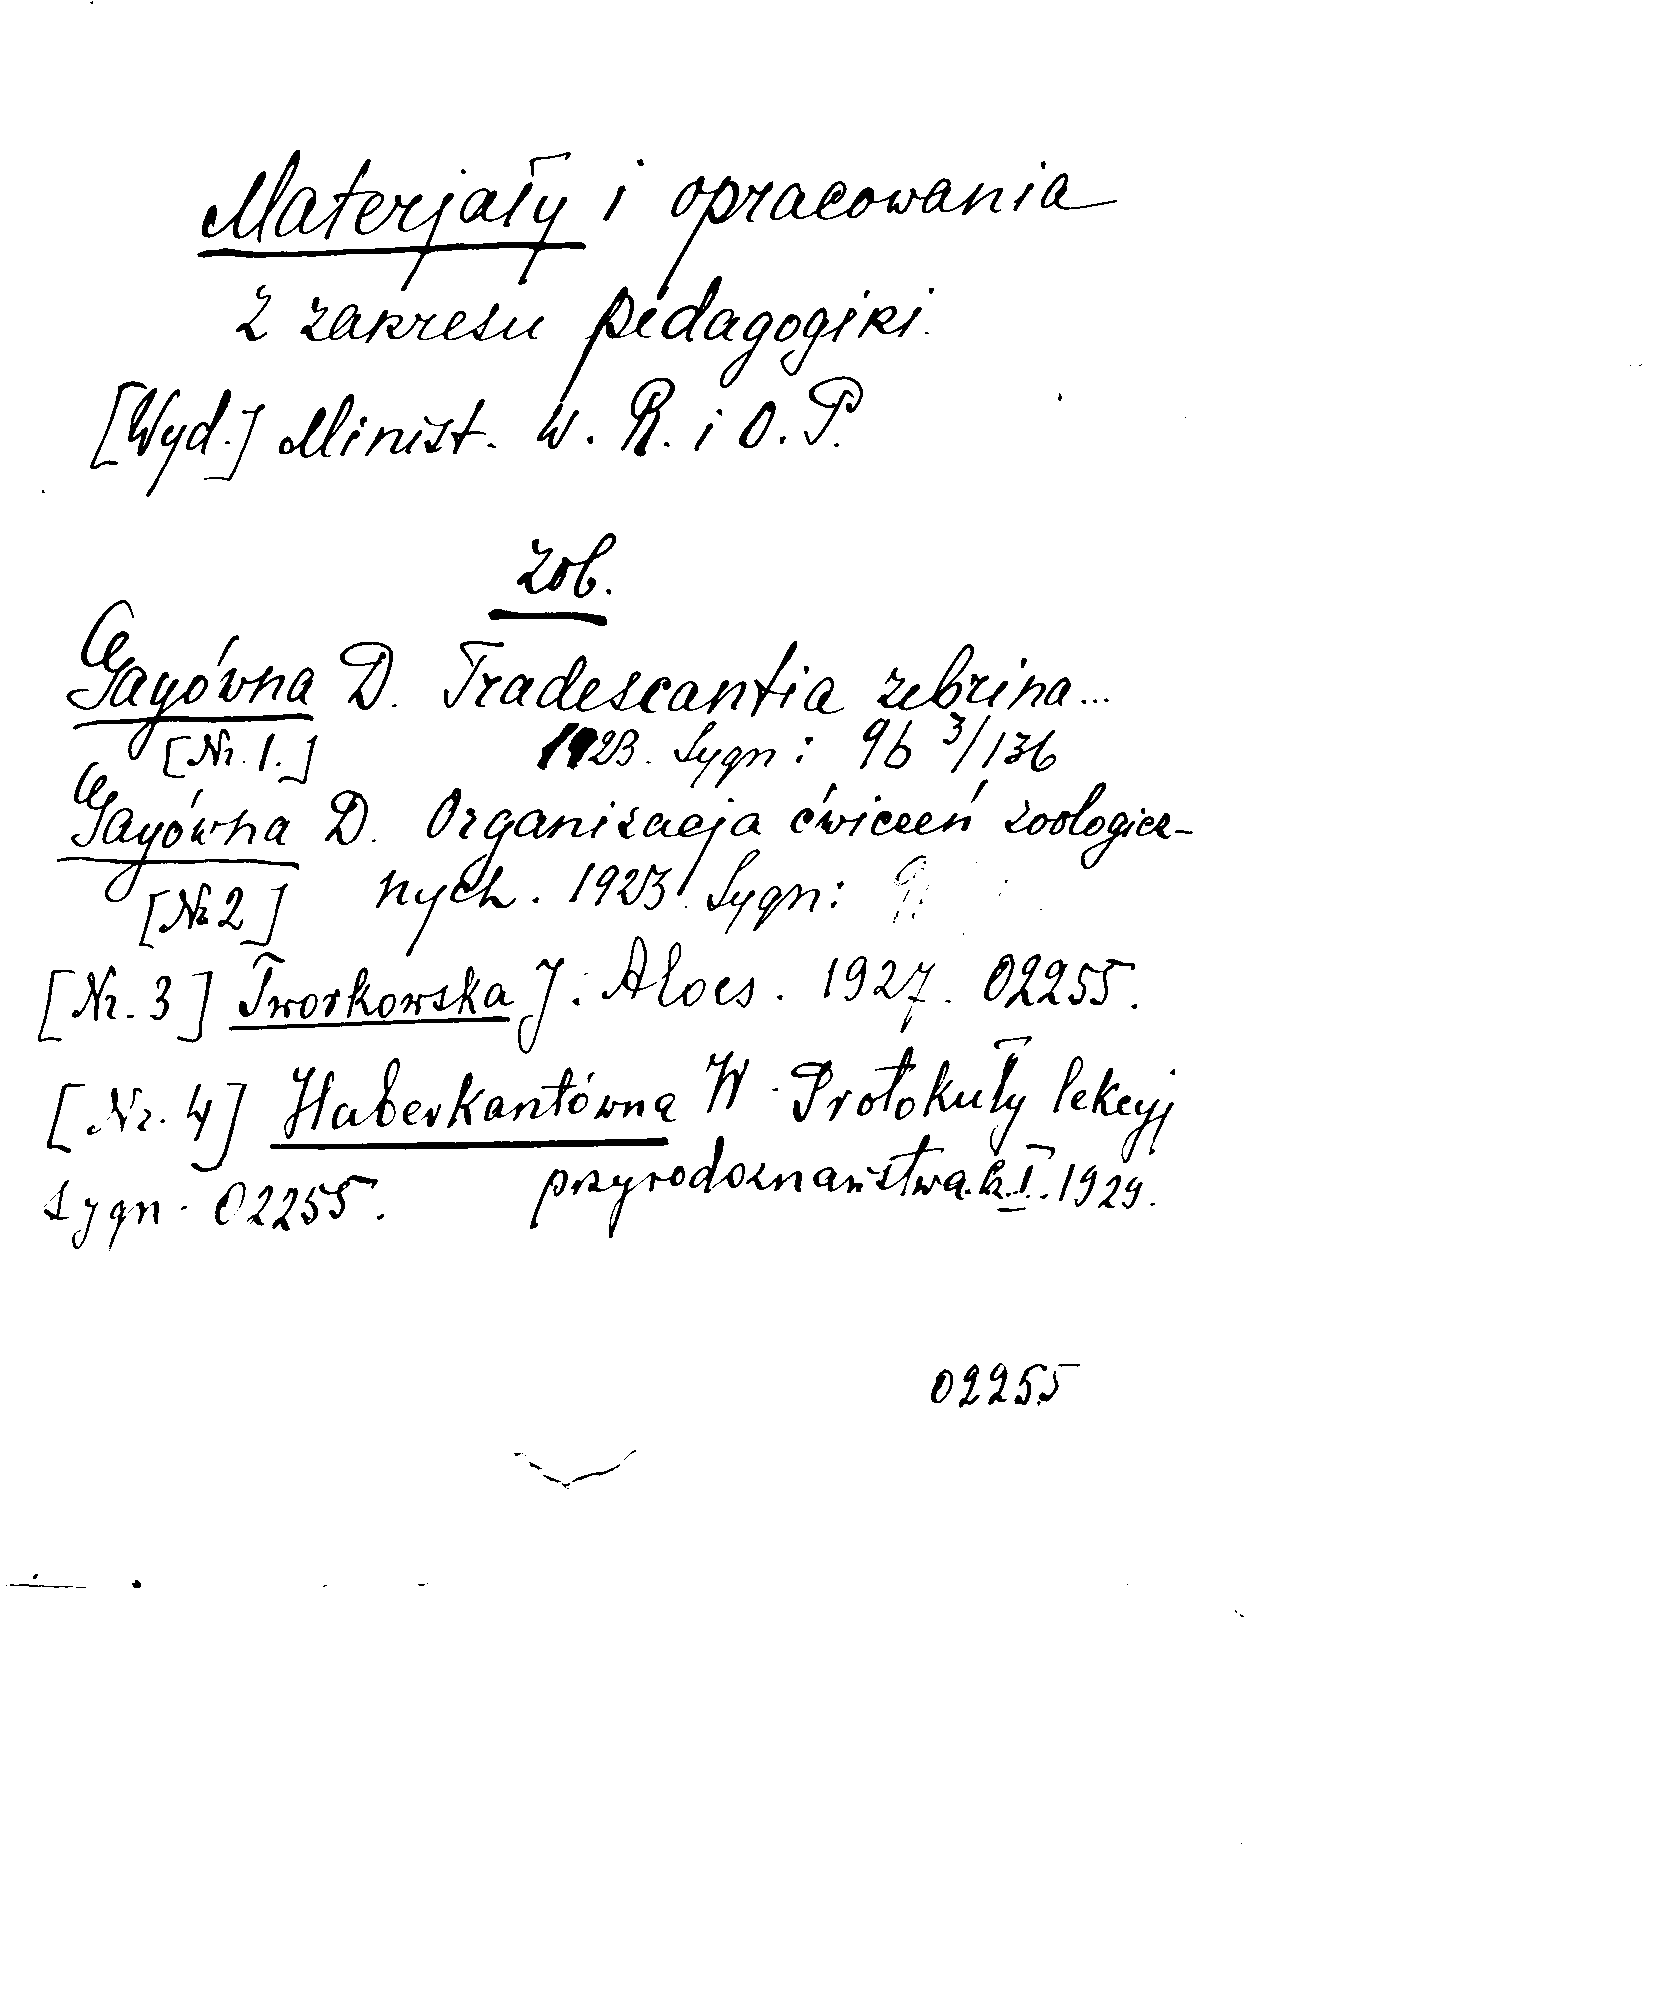 Materjały i opracowania
z zakresu pedagogiki.
[Wyd.] Minist. W. R. i O. P.
zob.
Gayówna D. Tradescantia zebrina...
[Nr. 1.] 1923. Sygn: 96 3/136
Gayówna D. Organizacja ćwiczeń zoologicz-
[Nr 2] nych. 1923. Sygn:
[Nr. 3] Tworkowska J. Aloes. 1927. 02255.
[Nr. 4] Haberkantówna W. Protokuły lekcyj
Sygn. 02255. przyrodoznawstwa. Cz. I. 1929.
02255